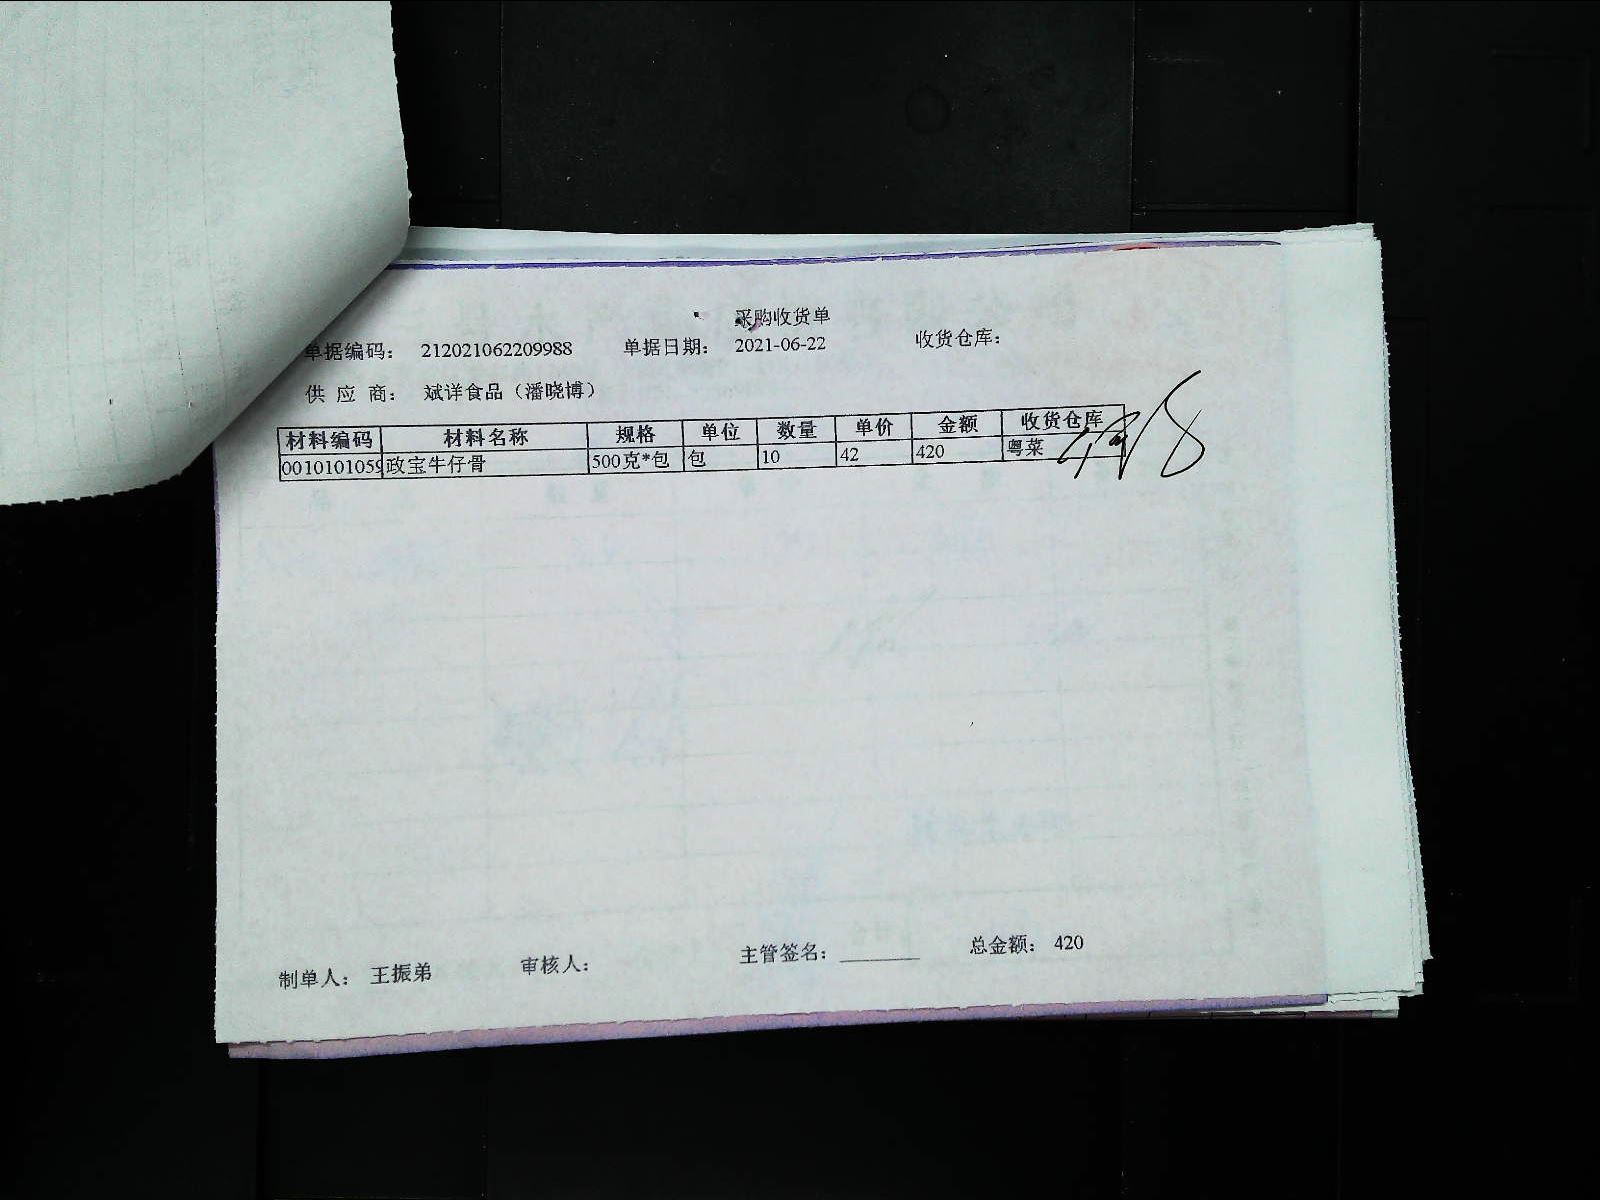 采购收货单
单据编码： 212021062209988 单据日期： 2021-06-22 收货仓库：
供 应 商： 斌详食品（潘晓博）
材料编码 材料名称 规格 单位 数量 单价 金额 收货仓库
0010101059 政宝牛仔骨 500克*包 包 10 42 420 粤菜
制单人： 王振弟 审核人： 主管签名： 总金额： 420